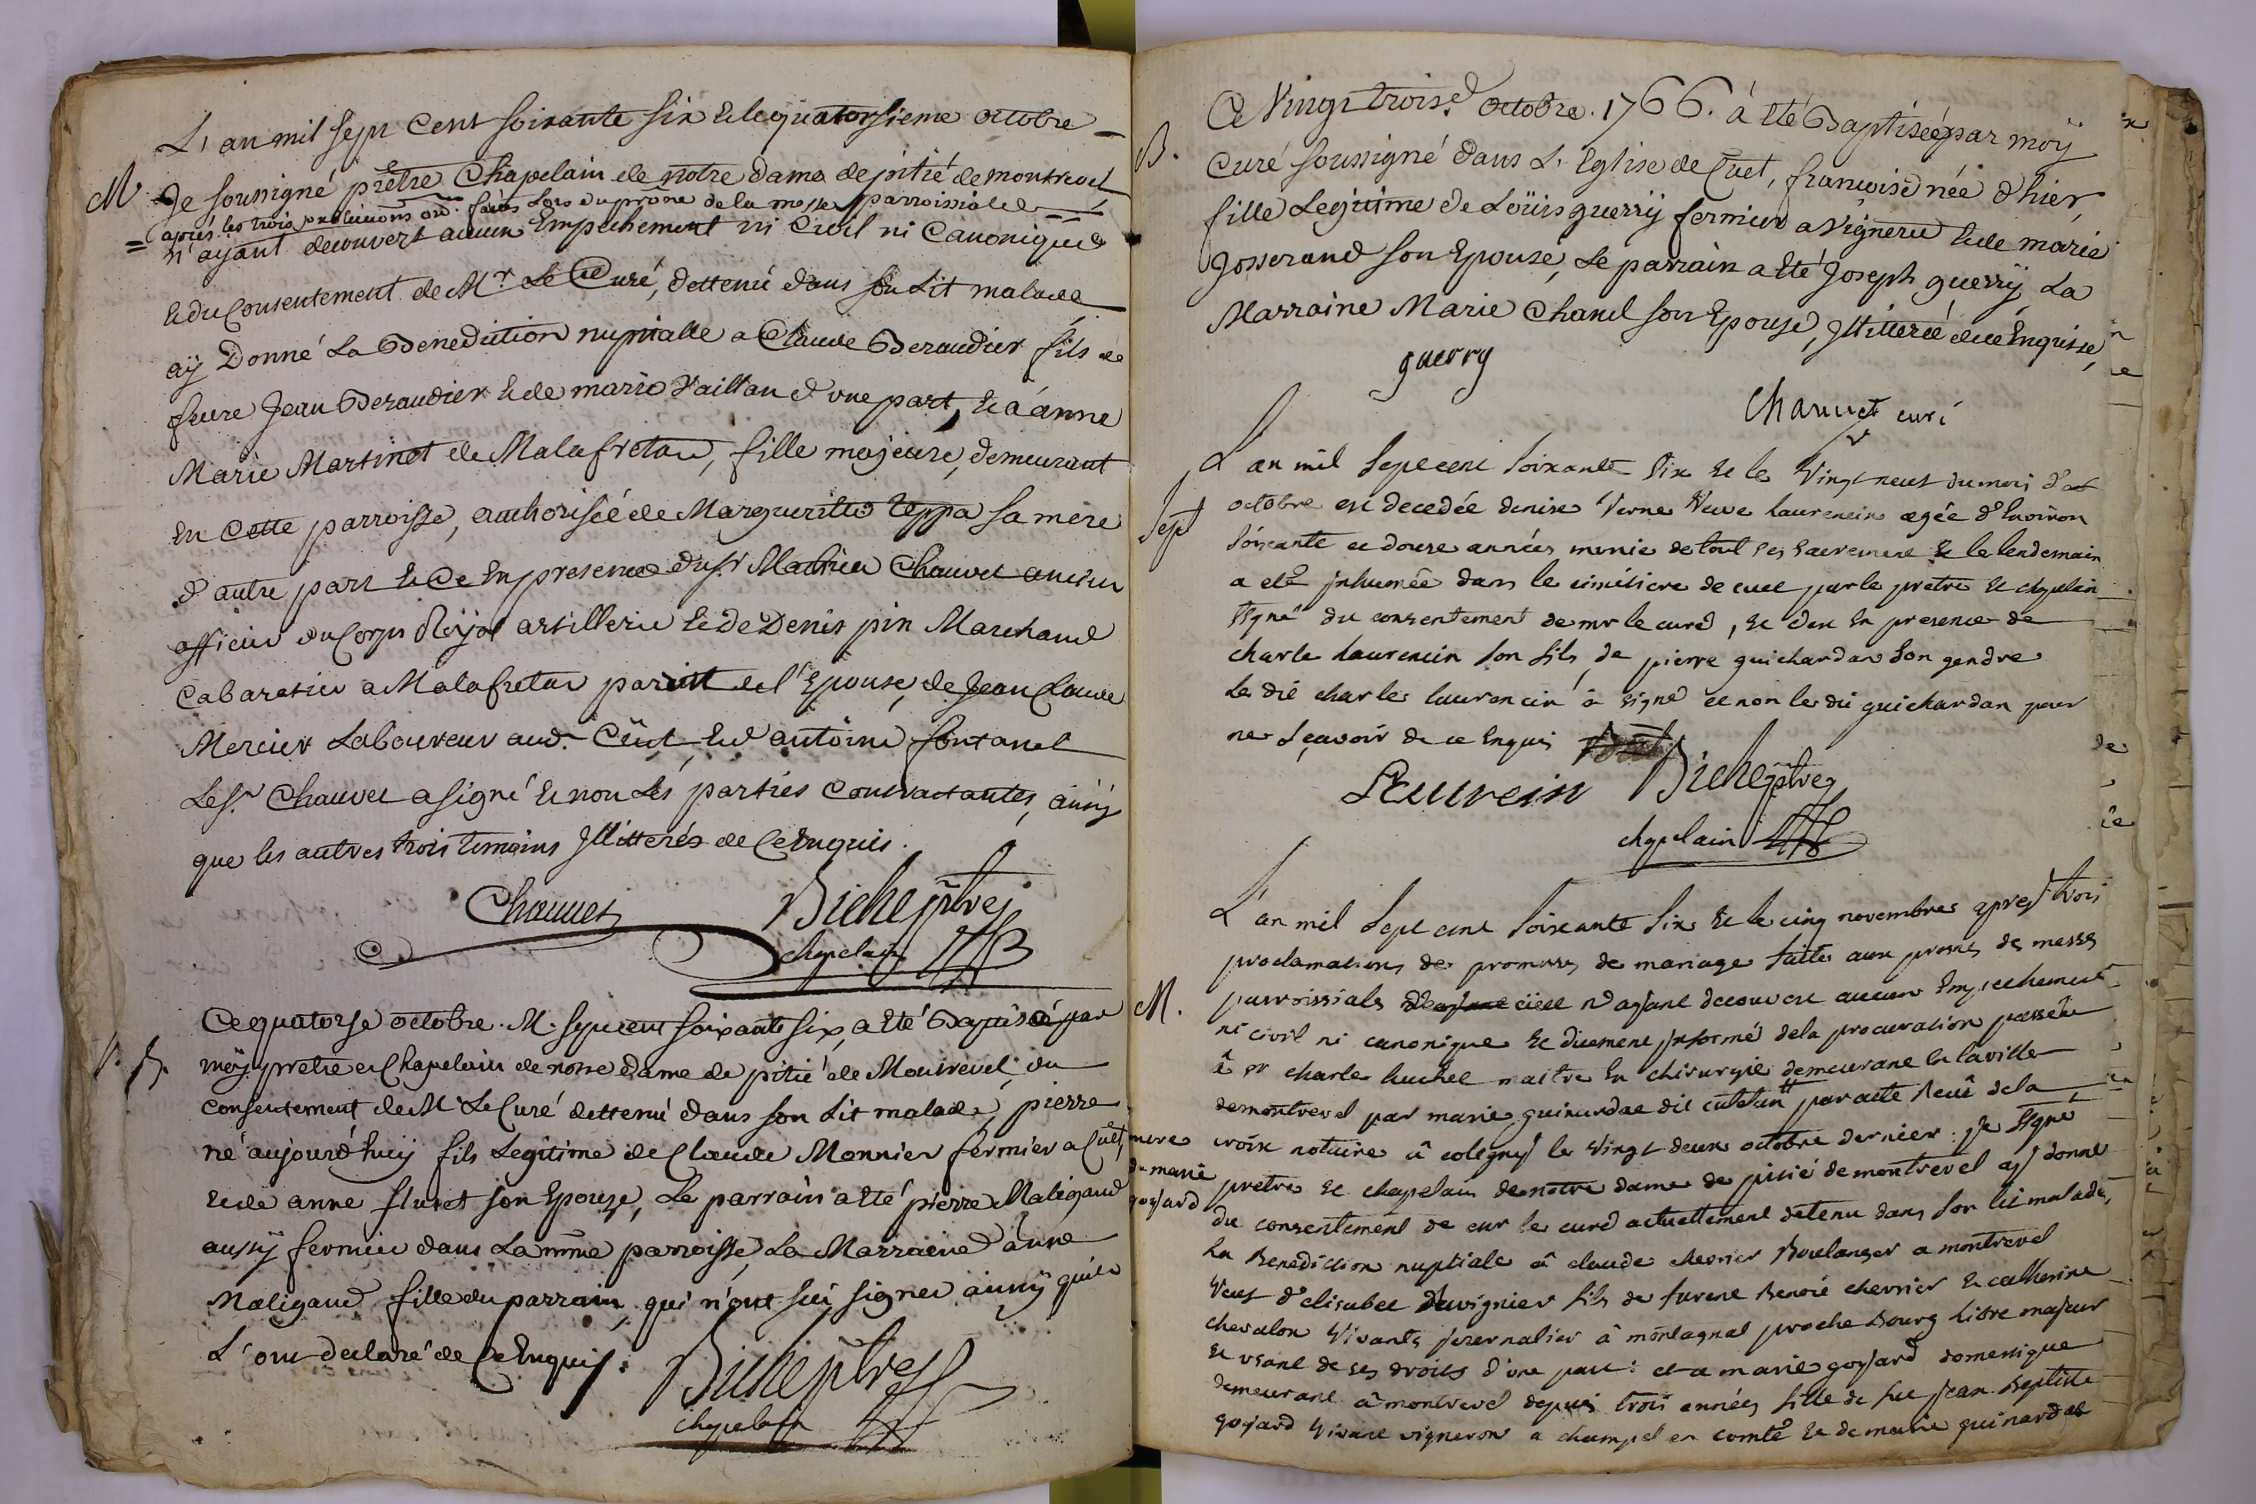 L'an mil sept Cent soixante six & le quatorsieme octobre
M
Je soussigné prêtre Chapelain de notre dame de pitié de montrevel
= après les trois publications ord. faites Lors du prône de la messe parroissiale
n'ayant decouvert aucun Empechement ni Civil ni Canonique
& du Consentement de Mr Le Curé, dettenü dans son Lit malade
aÿ Donné La Benediction nuptialle a Claude Beraudier fils de
feüe Jean Beraudier & de marie Vaillan d'une part, & à anne
Marie Martinet de Malafretaz, fille majeure, demeurant
En Cette parroisse, authorisée de Margueritte teppa sa mere
d'autre part & Ce En presence du Sr Mathieu Chauvet ancien
officier du Corps Roÿal artillerie & De Denis pin Marchand
Cabaretier a Malafretaz parent de l'Epouse, de Jean Claude
Mercier Laboureur aud. Cüet, & d'antoine fontanel
Le Sr Chauvet a signé & non Les parties Contractantes, ainsÿ
que les autres trois temoins Jllitterés de Ce Enquis.
Chauvet Biche ptre
chapelain
Ce quatorse octobre M. sept cent soixante six, a Eté Baptisé par
B.
moÿ pretre & Chapelain de notre Dame de pitié de Montrevel, du
Consentement de Mr Le Curé dettenü dans son Lit malade, pierre
né aujourd'huÿ fils Legitime de Claude Monnier fermier a Cüet,
& de anne fluret son Epouse, Le parrain a Eté pierre Maligand
aussÿ fermier dans La même parroisse, La Marraine anne
Maligand fille du parrain, qui n'ont sçü signer ainsÿ qu'ils
L'ont declaré de Ce Enquis.
Biche ptre
chapelain
Ce Vingt trois octobre. 1766. à Eté Baptisée par moÿ
B.
Curé soussigné dans L'Eglise de Cuet, francoise née d'hier,
fille Legitime de Loüis guerrÿ fermier a Vignerie & de marie
Josserand son Epouse, Le parrain a Eté Joseph guerrÿ, La
Marraine Marie Chanel son Epouse, Jllitterée de ce Enquise,
guerry
Chauvet curé
L'an mil Sept cent Soixante Six & le Vingt neuf du mois d'
Sept
octobre est decedée denise Verne Veuve laurencin agée d'Environ
Soixante et douze années munie de tout ses sacremens & le lendemain
a eté jnhumée dans le cimitiere de cuet par le pretre et chapelain
signé du consentement de mr le curé, et ce En presence de
charle laurencin son fils, de pierre guichardan son gendre
Le dit charles laurencin à signé et non le dit guichardan pour
ne Sçavoir de ce Enquis
Leurencin Biche ptre
chapelain
L'an mil Sept cent Soixante Six & le cinq novembre apres trois
proclamations de promesses de mariage faites aux prones des messes
M.
parroissiales n'ayant decouvert aucun Empechement
ni civil ni canonique et duement jnformé de la procuration passée
à sr charle huchet maitre En chirurgie demeurant En la ville
de montrevel par marie guinardae dit catelin par acte Recû de la
mere de marie goyard
croix notaire à coligny le Vingt deux octobre dernier. je signé
pretre et chapelain de notre dame de pitié de montrevel ay donné
du consentement de mr le curé actuellement detenu dans son lit malade,
La Benediction nuptiale à claude chevrier Boulanger a montrevel
Veuf d'elisabet duvignier fils de furent Benoit chevrier & catherine
chevalon Vivants journalier à montagnat proche Bourg libre majeur
et usant de ses droits d'une part: et a marie goyard domestique
demeurant à montrevel depuis trois années fille de feu jean Baptiste
goyard Vivant vigneron a champel en comté & de marie guinardae